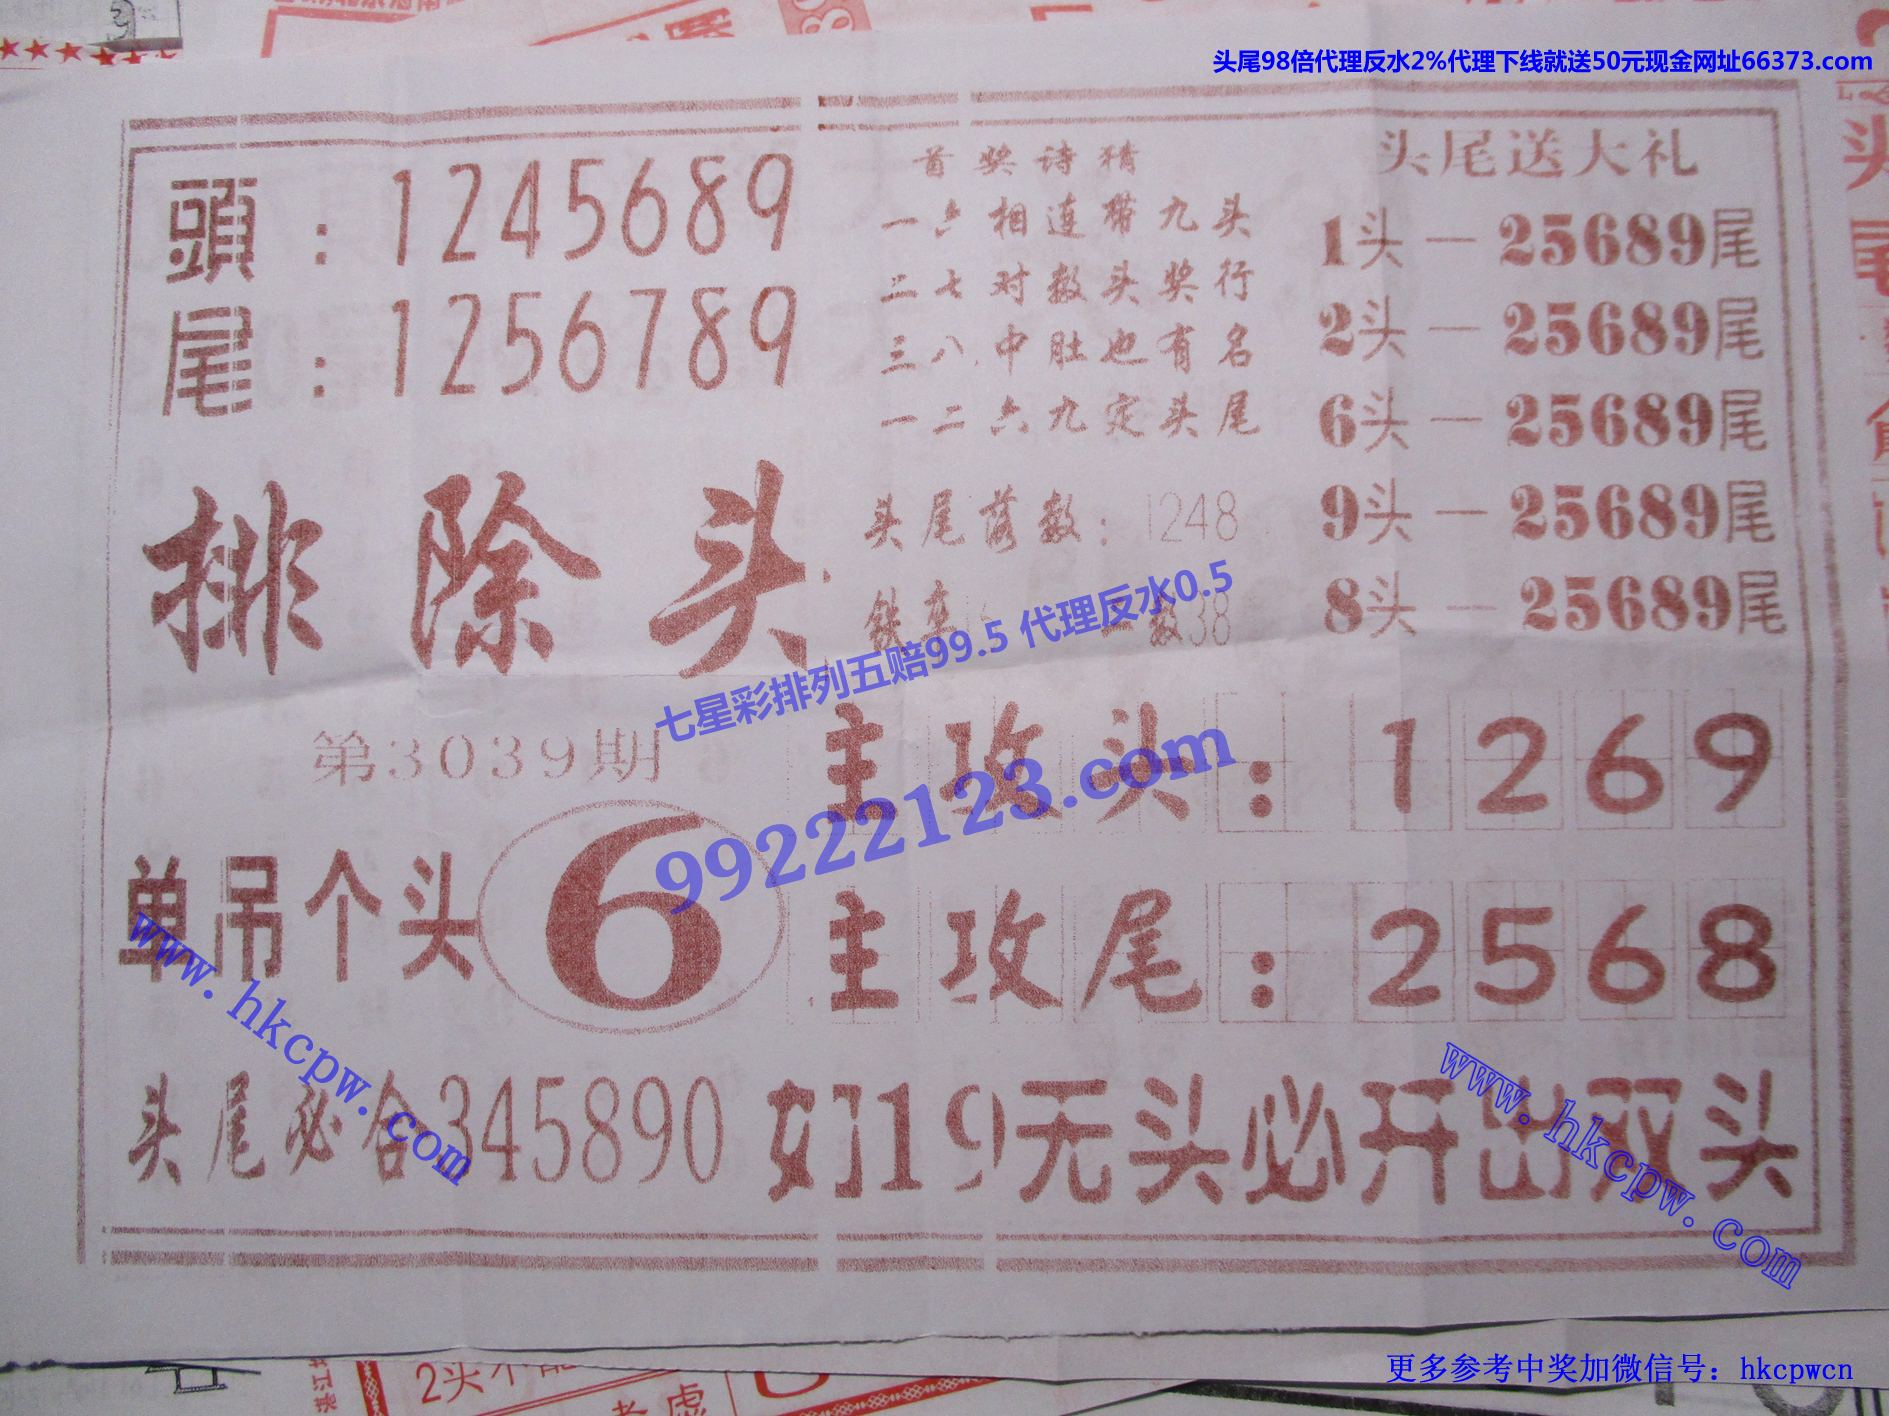 头尾98倍代理反水2%代理下线就送50元现金网址66373.com
頭：1245689
尾：1256789
首奖诗猜
一六相连带九头
二七对数头奖行
三八中肚也有名
一二六九定头尾
头尾落数：1248
铁卒
数38
头尾送大礼
1头—25689尾
2头—25689尾
6头—25689尾
9头—25689尾
8头—25689尾
排除头
七星彩排列五赔99.5 代理反水0.5
99222123.com
第3039期
单吊个头 6
主攻头：1269
主攻尾：2568
www.hkcpw.com
www.hkcpw.com
头尾必合345890
如19无头必开出双头
2头不
考虑
更多参考中奖加微信号：hkcpwcn